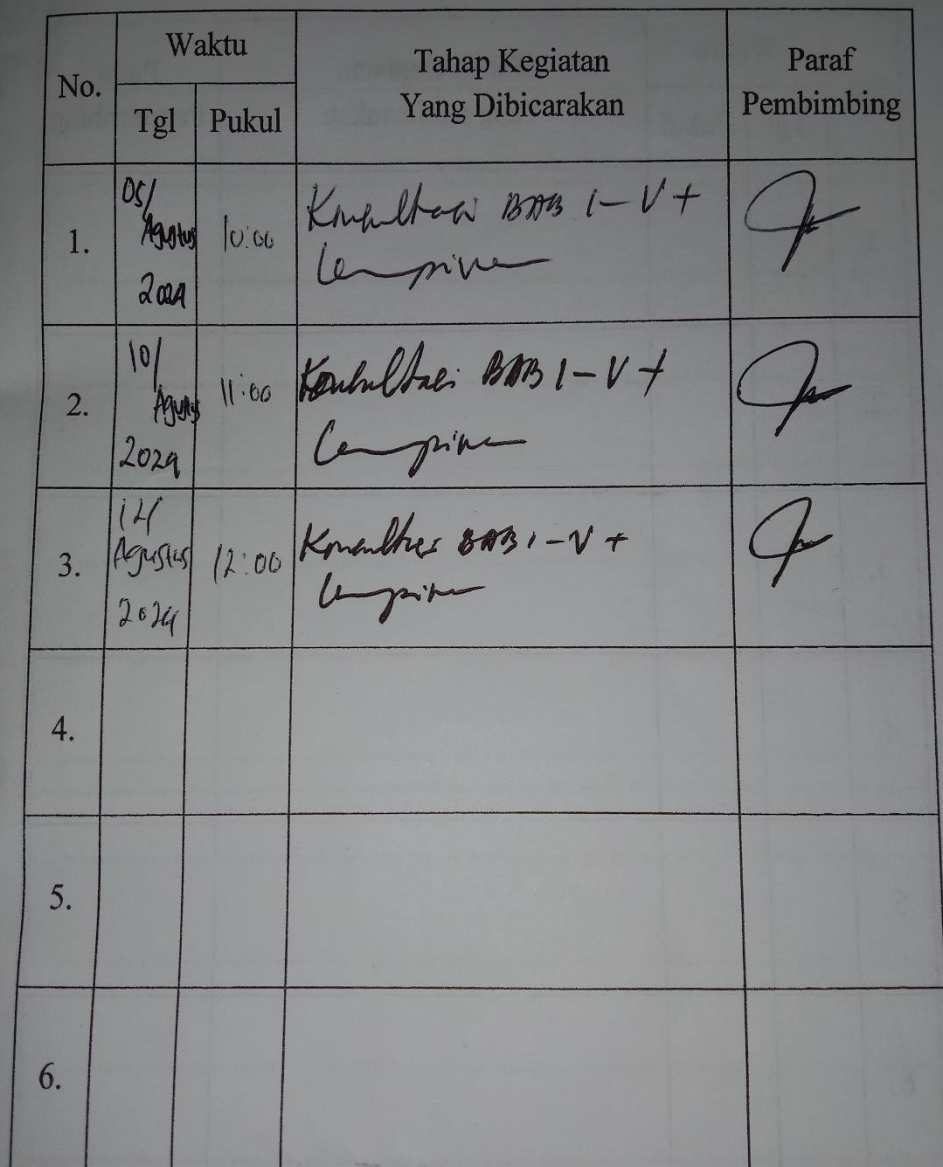 No.
Waktu
Tgl
Pukul
Tahap Kegiatan
Yang Dibicarakan
Paraf
Pembimbing
1.
05/
Agustus
2024
10:00
Konsultasi BAB I-V +
Lampiran
2.
10/
Agustus
2024
11:00
Konsultasi BAB I-V +
Lampiran
3.
12/
Agustus
2024
12:00
Konsultasi BAB I-V +
Lampiran
4.
5.
6.